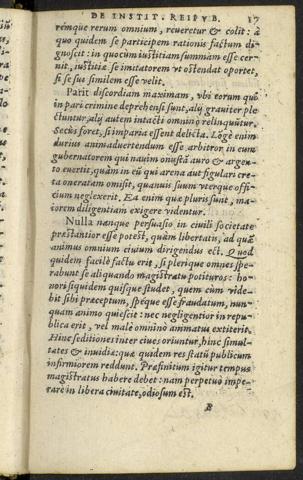 DE INSTIT. REIPVB. 17
rémque rerum omnium, reueretur & colit: à
quo quidem se participem rationis factum di-
gnoscit: in quocúm iustitiam summam esse cer-
nit, iustitiæ se imitatorem vt ostendat oportet,
si se sus similem esse velit.
Parit discordiam maximam, vbi eorum qui
in pari crimine deprehensi sunt, alij grauiter ple-
ctuntur, alij autem intacti omnino relinquūtur.
Secùs foret, si imparia essent delicta. Lōgè enim
durius animaduertendum esse arbitror in eum
gubernatorem qui nauim onustā auro & argen-
to euertit, quàm in eū qui arena aut figulari cre-
ta oneratam omisit, quanuis suum vterque offi-
cium neglexerit. Ea enim quæ pluris sunt, ma-
iorem diligentiam exigere videntur.
Nulla nanque persuasio in ciuili societate
præstantior esse potest, quàm libertatis, ad quā
animus omnium ciuium dirigendus est. Quod
quidem facilè factu erit, si plerique omnes spe-
rabunt se aliquando magistratu potituros: ho-
nori siquidem quisque studet, quem cùm vide-
bit sibi præceptum, spéque esse fraudatum, nun-
quam animo quiescit: nec negligentior in repu-
blica erit, vel malè omninò animatus extiterit.
Hinc seditiones inter ciues oriuntur, hinc simul-
tates & inuidiæ: quæ quidem res statū publicum
infirmiorem reddunt. Præfinitum igitur tempus
magistratus habere debet: nam perpetuò impe-
rare in libera ciuitate, odiosum est.
B